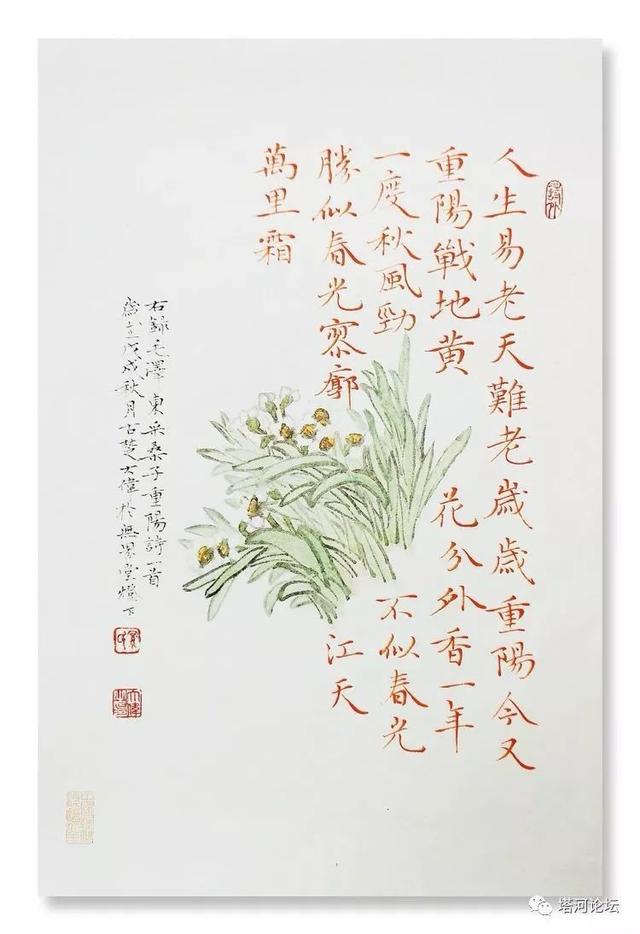 人生易老天難老歲歲重陽今又
重陽戰地黃花分外香一年
一度秋風勁不似春光
勝似春光寥廓江天
萬里霜
右錄毛澤東采桑子重陽詩一首
戊戌秋月古楚大偉於無堂燈下
塔河论坛